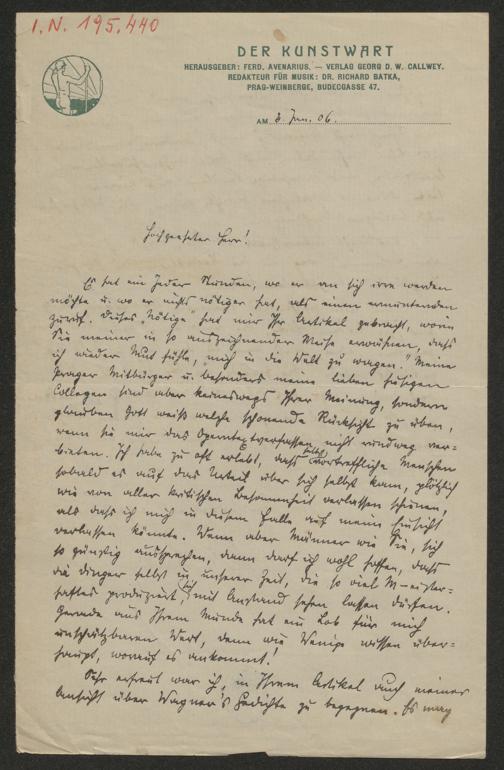 I.N. 195.440
DER KUNSTWART
HERAUSGEBER: FERD. AVENARIUS. — VERLAG GEORG D. W. CALLWEY.
REDAKTEUR FÜR MUSIK: DR. RICHARD BATKA,
PRAG-WEINBERGE, BUDECGASSE 47.
AM 3. Jan. 06.
Hochgeehrter Herr!
Es hat ein Jeder Stunden, wo er an sich irre werden
möchte u. wo er nichts nötiger hat, als einen ermunternden
Zuruf. Dieses „Nötige“ hat mir Ihr Artikel gebracht, worin
Sie meiner in so auszeichnender Weise erwähnen, daß
ich wieder Mut fühle, „mich in die Welt zu wagen.“ Meine
Prager Mitbürger u. besonders meine lieben hiesigen
Collegen sind aber keineswegs Ihrer Meinung, sondern
glauben Gott weiß welche schonende Rücksicht zu üben,
wenn sie mir das Operntextverfassen nicht rundweg ver=
bieten. Ich habe zu oft erlebt, daß selbst vortreffliche Menschen
sobald es auf das Urteil über sich selbst kam, plötzlich
wie von aller kritischen Besonnenheit verlassen schienen,
als daß ich mich in diesem Falle auf meine Einsicht
verlassen könnte. Wenn aber Männer wie Sie, sich
so günstig aussprechen, dann darf ich wohl hoffen, daß
die Dinger selbst in unserer Zeit, die so viel M–eister=
haftes produziert, sich mit Anstand sehen lassen dürfen.
Gerade aus Ihrem Munde hat ein Lob für mich
unschätzbaren Wert, denn wie Wenige wissen über=
haupt, worauf es ankommt!
Sehr erfreut war ich, in Ihrem Artikel auch meiner
Ansicht über Wagner's Gedichte zu begegnen. Es mag